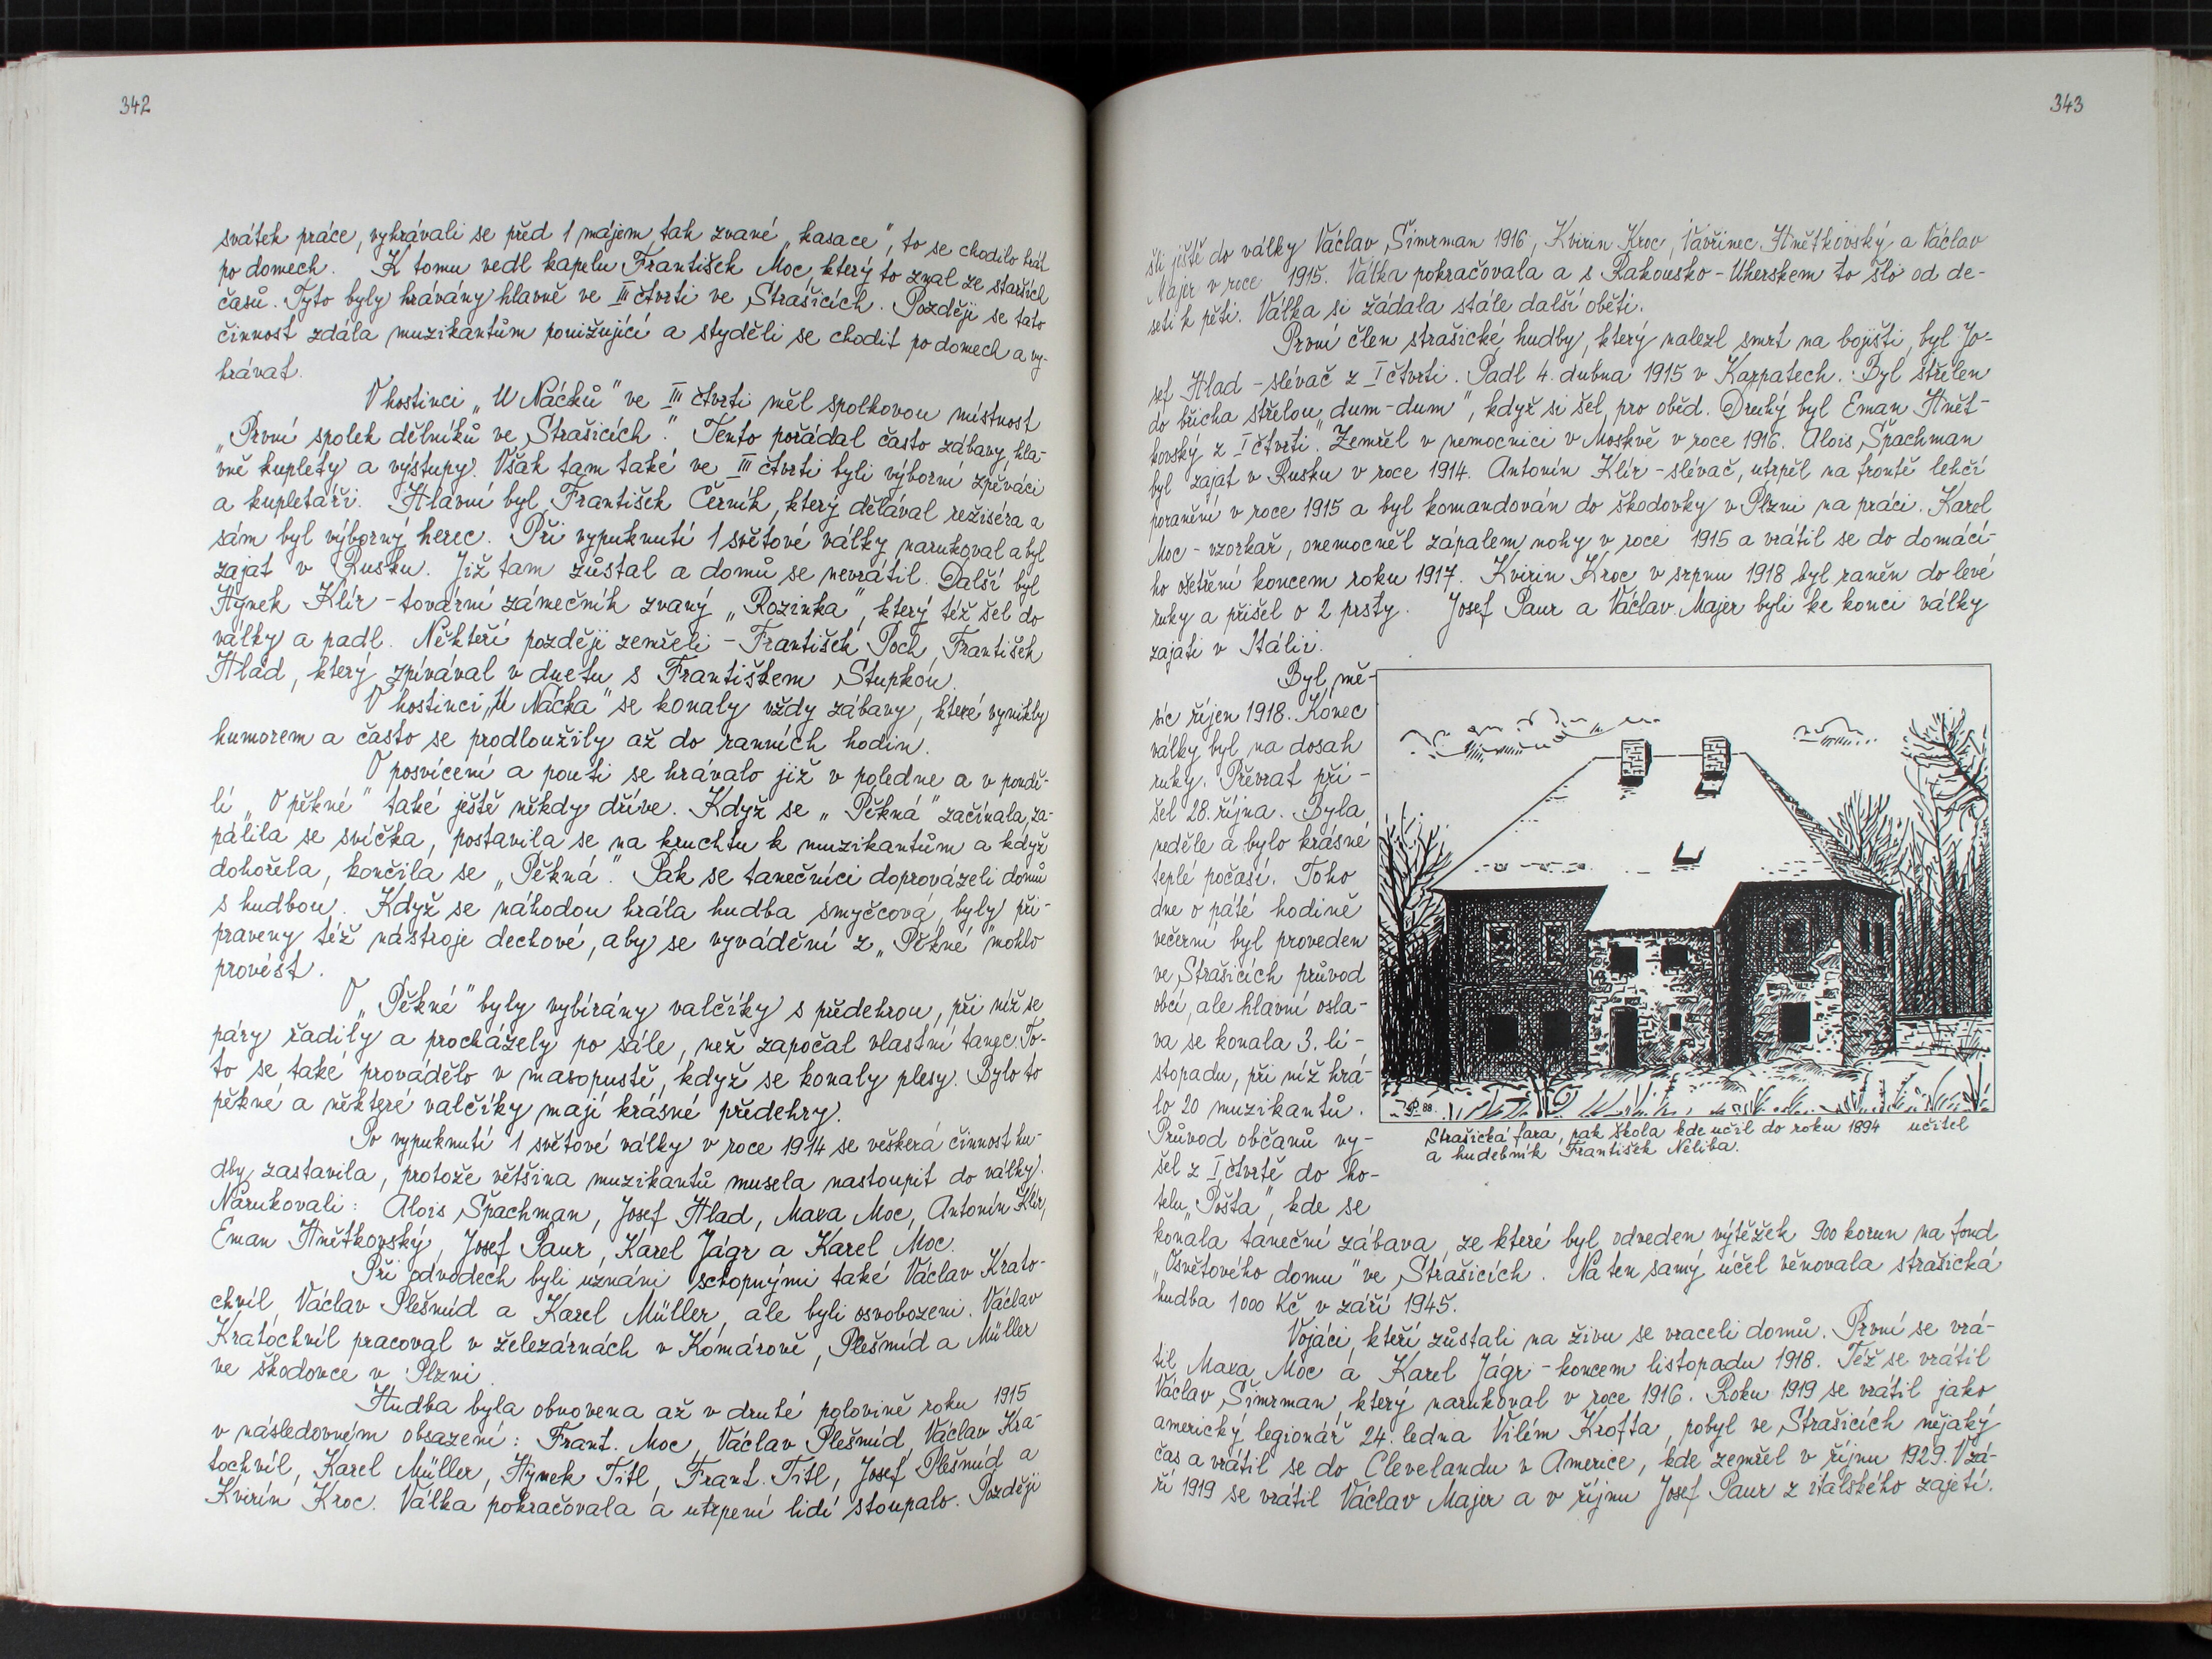 342
svátek práce, vyhrávali se před 1 májem tak zvané „kasace", to se chodilo hrát
po domech. K tomu vedl kapelu František Moc, který to znal ze starších
časů. Tyto byly hrávány hlavně ve III čtvrti ve Strašicích. Později se tato
činnost zdála muzikantům ponižující a styděli se chodit po domech a vy-
hrávat.
V hostinci „U Nácků" ve III čtvrti měl spolkovou místnost
„První spolek dělníků ve Strašicích." Tento pořádal často zábavy, hla-
vně kuplety a výstupy. Však tam také ve III čtvrti byli výborní zpěváci
a kupletáři. Hlavní byl František Černík, který dělával režiséra a
sám byl výborný herec. Při vypuknutí 1 světové války narukoval a byl
zajat v Rusku. Již tam zůstal a domů se nevrátil. Další byl
Hynek Klír - tovární zámečník zvaný „Rozinka", který též šel do
války a padl. Někteří později zemřeli - František Poch, František
Hlad, který zpívával v duetu s Františkem Stupkou.
V hostinci „U Nácka" se konaly vždy zábavy, které vynikly
humorem a často se prodloužily až do ranních hodin.
O posvícení a pouti se hrávalo již v poledne a v pondě-
lí „O pěkné" také ještě někdy dříve. Když se „Pěkná" začínala, za-
pálila se svíčka, postavila se na kruchtu k muzikantům a když
dohořela, končila se „Pěkná". Pak se tanečníci doprovázeli domů
s hudbou. Když se náhodou hrála hudba smyčcová, byly při-
praveny též nástroje dechové, aby se vyvádění z „Pěkné" mohlo
provést.
O „Pěkné" byly vybírány valčíky s předehrou, při níž se
páry řadily a procházely po sále, než započal vlastní tanec. To-
to se také provádělo v masopustě, když se konaly plesy. Bylo to
pěkné a některé valčíky mají krásné předehry.
Po vypuknutí 1 světové války v roce 1914 se veškerá činnost hu-
dby zastavila, protože většina muzikantů musela nastoupit do války.
Narukovali: Alois Špachman, Josef Hlad, Maxa Moc, Antonín Klír,
Eman Hnětkovský, Josef Paur, Karel Jágr a Karel Moc.
Při odvodech byli uznáni schopnými také Václav Krato-
chvíl, Václav Plešmíd a Karel Müller, ale byli osvobozeni. Václav
Kratochvíl pracoval v železárnách v Komárově, Plešmíd a Müller
ve škodovce v Plzni.
Hudba byla obnovena až v druhé polovině roku 1915
v následovném obsazení: Frant. Moc, Václav Plešmíd, Václav Kra-
tochvíl, Karel Müller, Hynek Titl, Frant. Titl, Josef Plešmíd a
Kvirin Kroc. Válka pokračovala a utrpení lidí stoupalo. Později
343
šli ještě do války Václav Šimrman 1916, Kvirin Kroc, Vavřinec Hnětkovský a Václav
Majer v roce 1915. Válka pokračovala a s Rakousko-Uherskem to šlo od de-
seti k pěti. Válka si žádala stále další oběti.
První člen strašické hudby, který nalezl smrt na bojišti, byl Jo-
sef Hlad - slévač z I čtvrti. Padl 4. dubna 1915 v Karpatech. Byl střelen
do břicha střelou „dum-dum", když si šel pro oběd. Druhý byl Eman Hnět-
kovský z I čtvrti. Zemřel v nemocnici v Moskvě v roce 1916. Alois Špachman
byl zajat v Rusku v roce 1914. Antonín Klír - slévač, utrpěl na frontě lehčí
poranění v roce 1915 a byl komandován do škodovky v Plzni na práci. Karel
Moc - vzorkař, onemocněl zápalem nohy v roce 1915 a vrátil se do domácí-
ho ošetření koncem roku 1917. Kvirin Kroc v srpnu 1918 byl raněn do levé
ruky a přišel o 2 prsty. Josef Paur a Václav Majer byli ke konci války
zajati v Itálii.
Byl mě-
síc říjen 1918. Konec
války byl na dosah
ruky. Převrat při-
šel 28. října. Byla
neděle a bylo krásné
teplé počasí. Toho
dne o páté hodině
večerní byl proveden
ve Strašicích průvod
obcí, ale hlavní osla-
va se konala 3. li-
stopadu, při níž hrá-
lo 20 muzikantů.
Průvod občanů vy-
šel z I čtvrtě do ho-
telu „Pošta", kde se
P. 88.
Strašická fara, pak škola kde učil do roku 1894 učitel
a hudebník František Neliba.
konala taneční zábava, ze které byl odveden výtěžek 900 korun na fond
„Osvětového domu" ve Strašicích. Na ten samý účel věnovala strašická
hudba 1000 Kč v září 1945.
Vojáci, kteří zůstali na živu se vraceli domů. První se vrá-
til Maxa Moc a Karel Jágr - koncem listopadu 1918. Též se vrátil
Václav Šimrman, který narukoval v roce 1916. Roku 1919 se vrátil jako
americký legionář 24. ledna Vilém Krofta, pobyl ve Strašicích nějaký
čas a vrátil se do Clevelandu v Americe, kde zemřel v říjnu 1929. V zá-
ří 1919 se vrátil Václav Majer a v říjnu Josef Paur z italského zajetí.